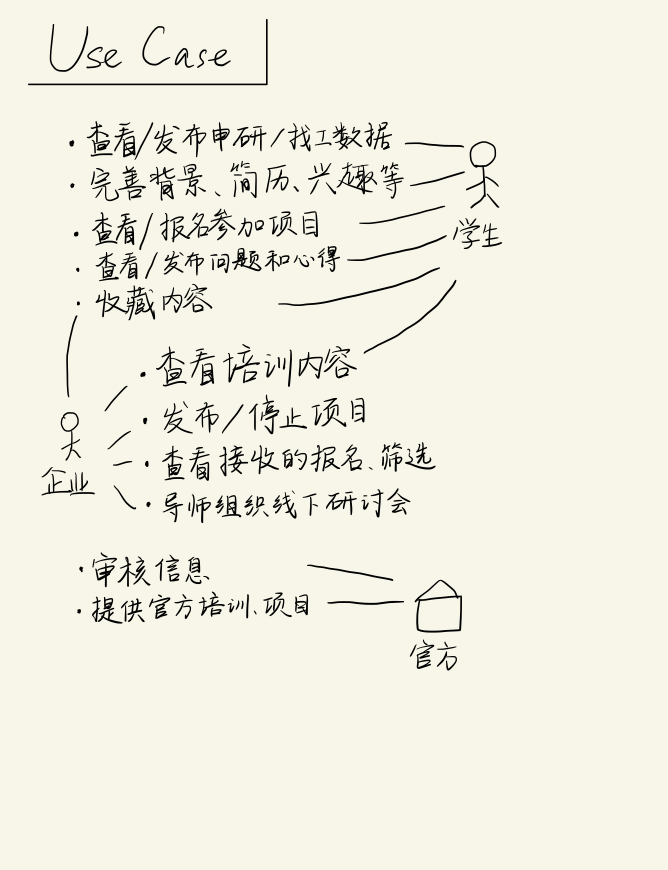 Use Case
· 查看/发布申研/找工数据
· 完善背景、简历、兴趣等
· 查看/报名参加项目
学生
· 查看/发布问题和心得
· 收藏内容
· 查看培训内容
· 发布/停止项目
· 查看接收的报名、筛选
企业
· 导师组织线下研讨会
· 审核信息
· 提供官方培训、项目
官方